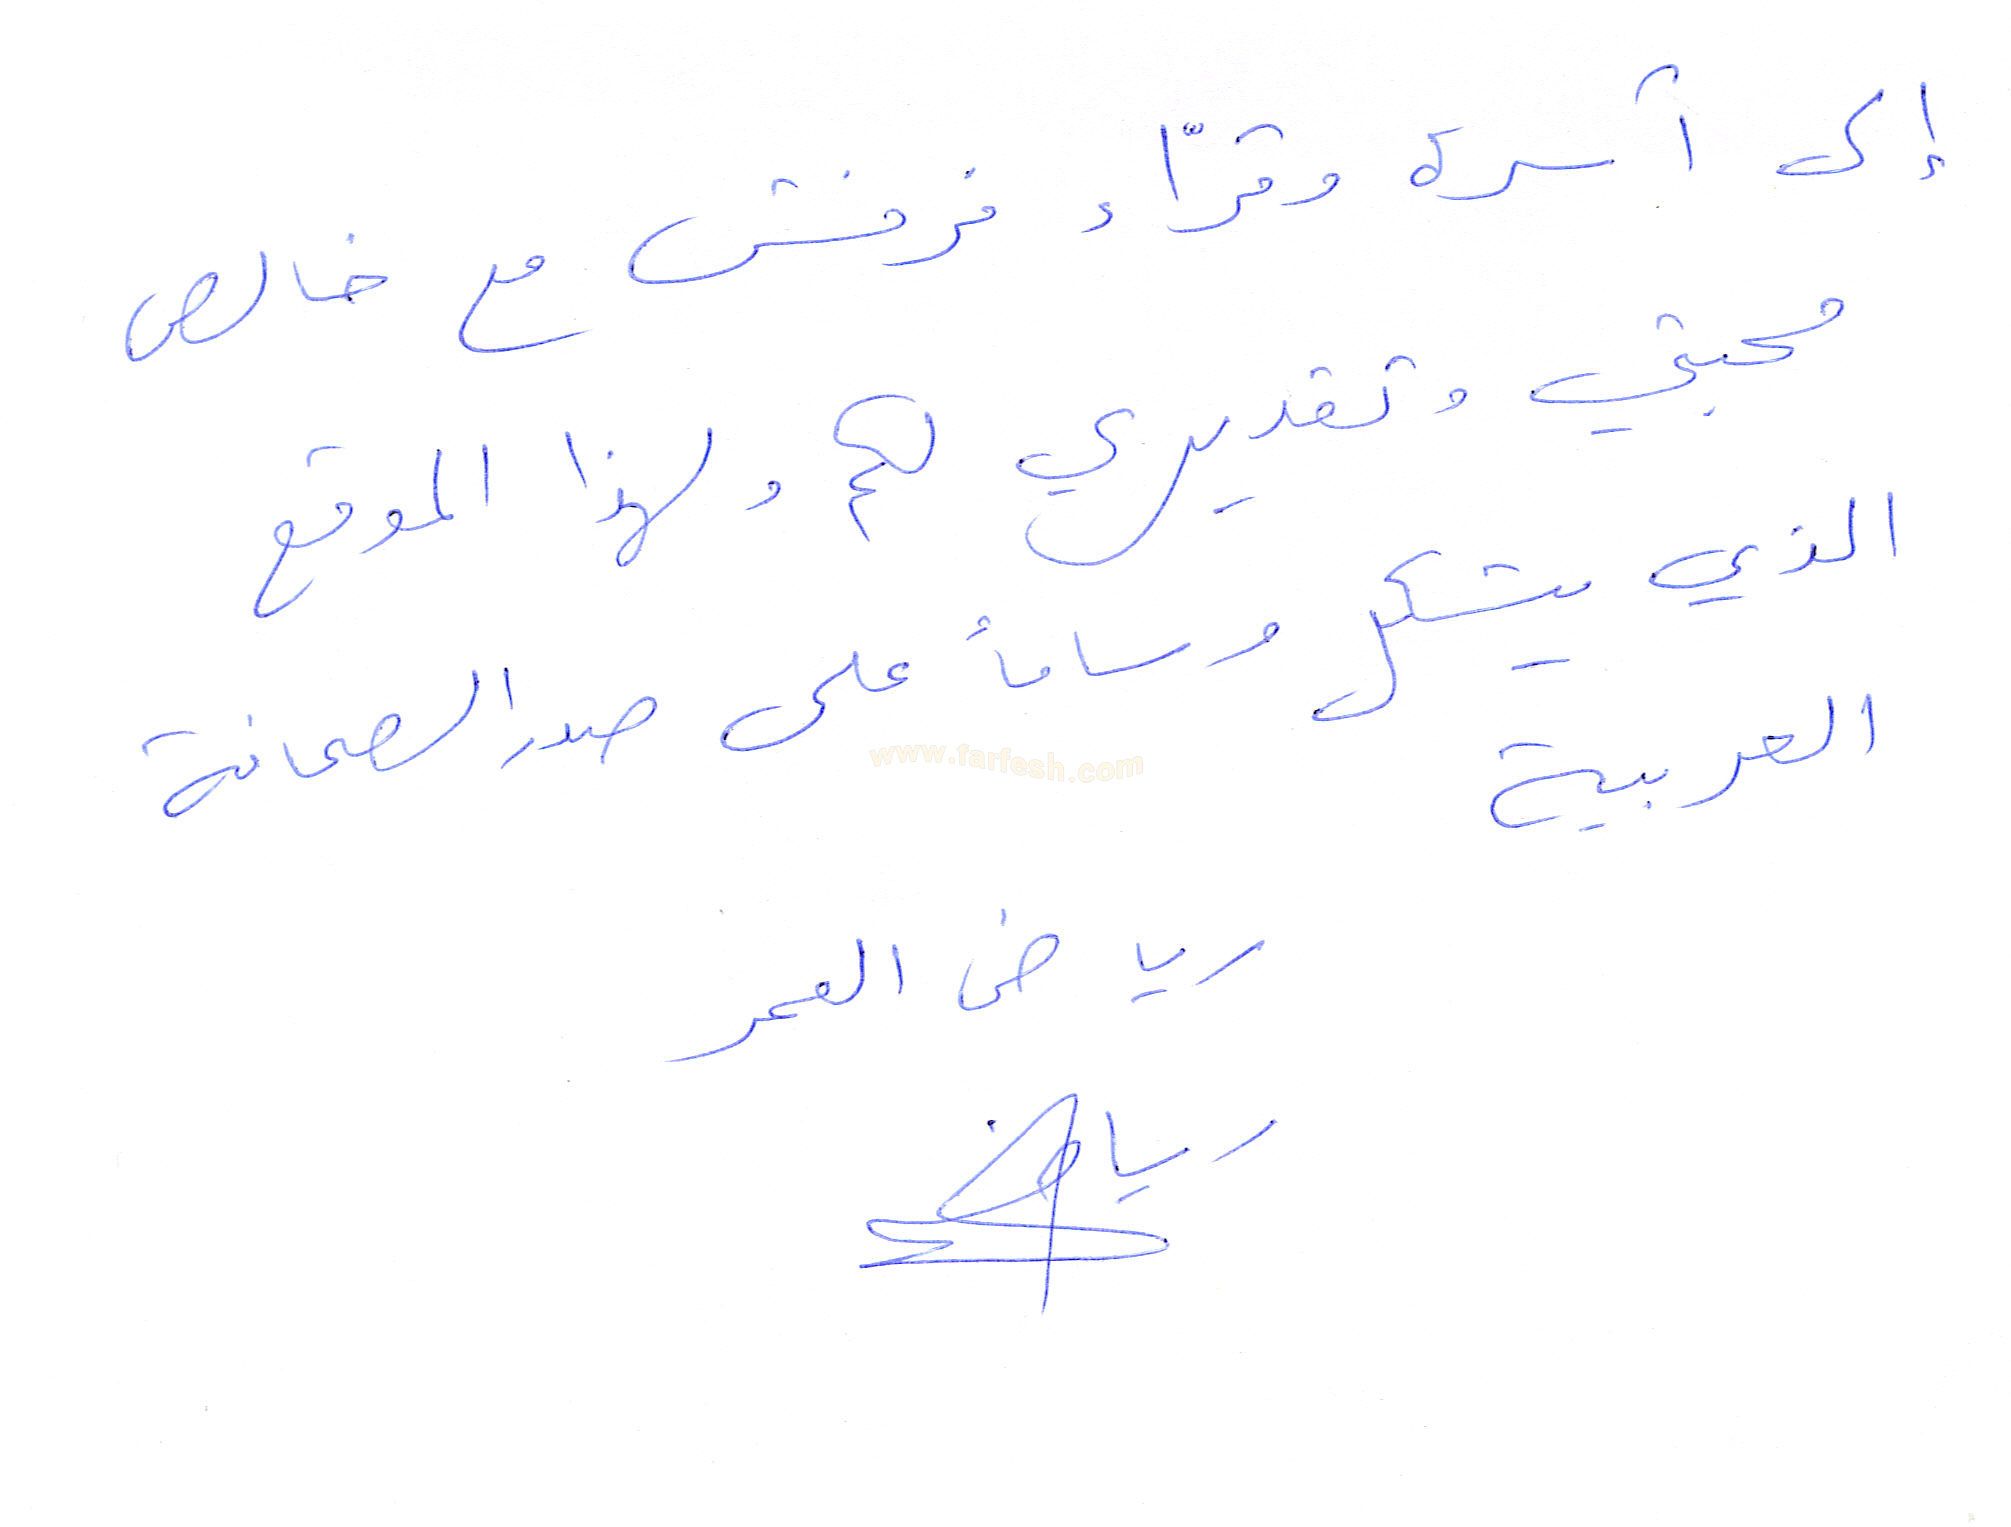 إلى أسرة وقرّاء فرفش مع خالص
محبتي وتقديري لكم ولهذا الموقع
الذي يشكل وساماً على صدر الصحافة
العربية
www.farfesh.com
رياض العمر
رياض